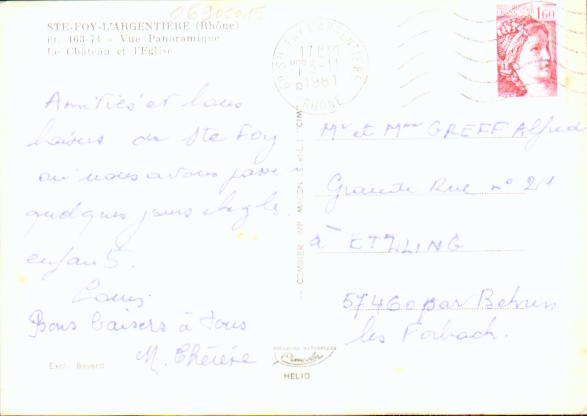 STE-FOY-L'ARGENTIÈRE (Rhône)
cr. 463-74 - Vue Panoramique
Le Château et l'Eglise
1,60
17H30
3-11
1981
RHONE
Amitiés et bons
baisers de Ste Foy
où nous avons passé
quelques jours chez les
enfants.
Louis
Bons baisers à tous
M. Thérèse
Mr et Mme GREFF Alfred
Grande Rue n° 21
à ETZLING
57460 par Behren
les Forbach.
COMBIER IMP. MACON (S.-et-L.) "CIM"
Cimcolor
HELIO
Excl. Bavard